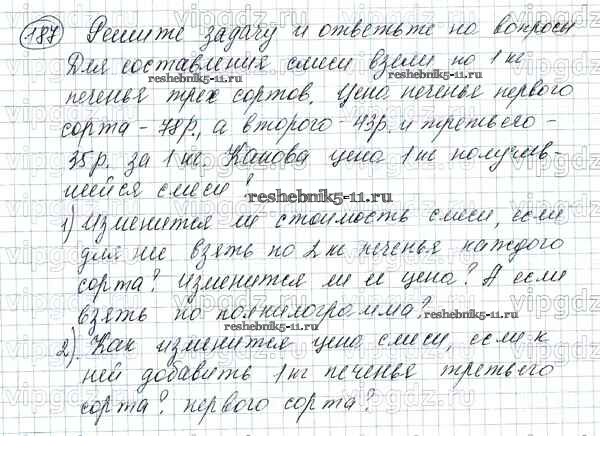 187 Решите задачу и ответьте на вопросы
Для составления смеси взяли по 1 кг
reshebnik5-11.ru
печенья трех сортов. Цена печенья первого
сорта - 78р., а второго - 43р. и третьего -
35р. за 1 кг. Какова цена 1 кг получив-
шейся смеси?
reshebnik5-11.ru
1) Изменится ли стоимость смеси, если
для нее взять по 2 кг печенья каждого
сорта? Изменится ли ее цена? А если
взять по полкилограмма?
reshebnik5-11.ru
2). Как изменится цена смеси, если к
ней добавить 1 кг печенья третьего
reshebnik5-11.ru
сорта? первого сорта?